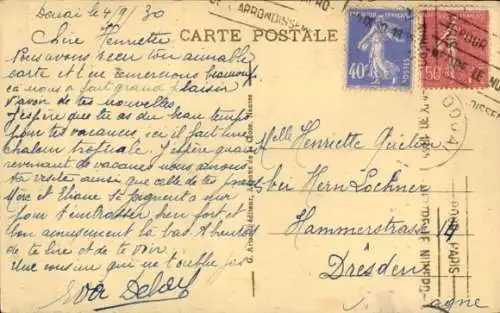 Douai le 4/9/30
Chère Henriette
Nous avons reçu ton aimable
carte et t'en remercions beaucoup
ça nous a fait grand plaisir
d'avoir de tes nouvelles.
J'espère que tu as du beau temps
pour tes vacances, ici il fait une
chaleur tropicale. J'espère quand
revenant de vacances nous aurons
ta visite ainsi que celle de tes
Mère et Eliane se joignent à moi
pour t'embrasser bien fort et
bon amusement là bas. A bientôt
de te lire et de te voir.
Une cousine qui ne t'oublie pas
Eva
CARTE POSTALE
ARRONDISSE
40c
POSTES
50
POUR
DOUAI
Melle Henriette
bei Hern Lochner
Hammerstrasse 14
Dresden
agne
POUR PARIS